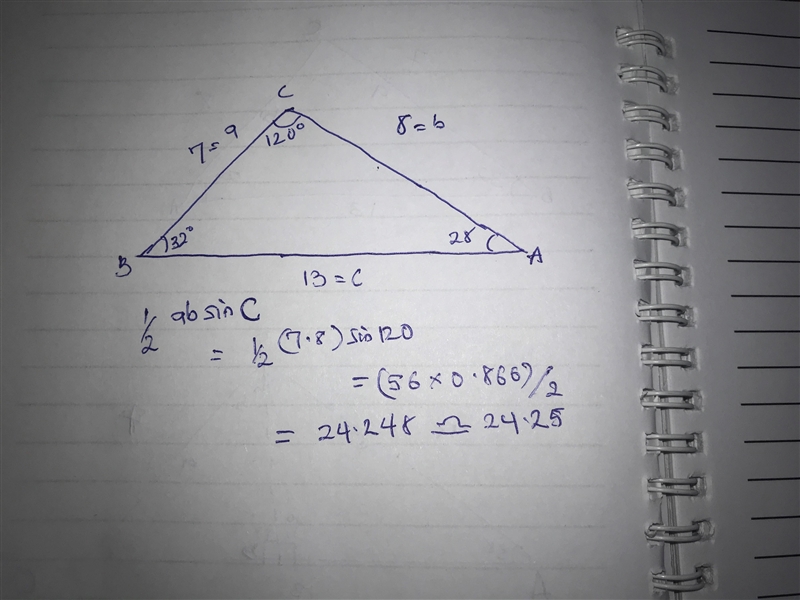 C
7 = a
8 = b
120°
B
32°
28
A
13 = c
1/2 ab sin C
= 1/2 (7·8) sin 120
= (56 × 0.866)/2
= 24.248 ≏ 24.25